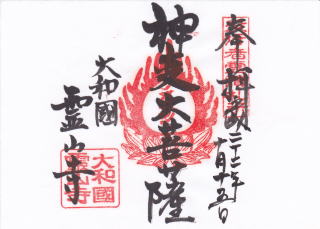 奉拝
二十二年
十月十五日
大菩薩
大和國
霊山寺
大和國
霊山寺